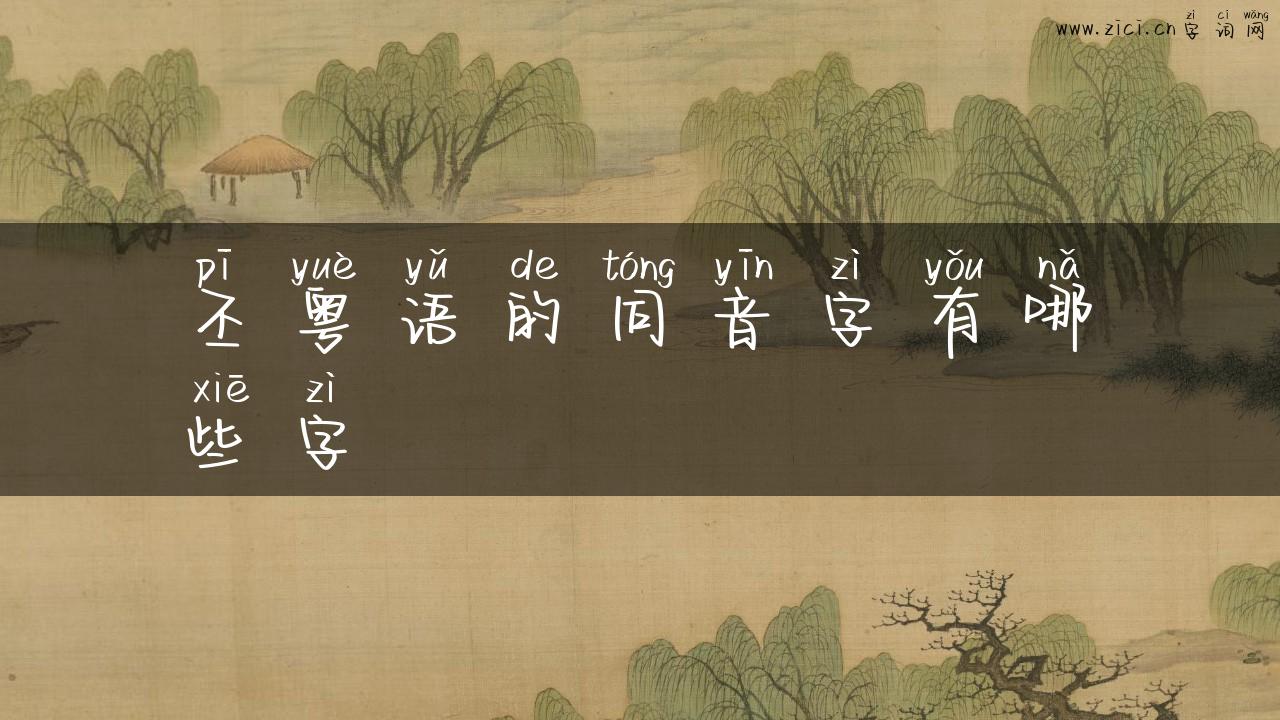 zì cí wǎng
www.zici.cn 字词网
pī yuè yǔ de tóng yīn zì yǒu nǎ
丕粤语的同音字有哪
xiē zì
些字